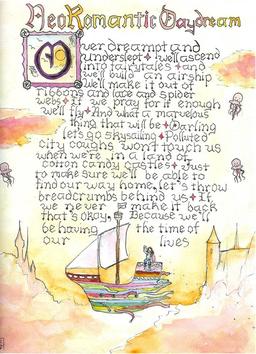 NeoRomantic Daydream
Overdreampt and
underslept ✦ we'll ascend
into fairytales ✦ and
we'll build an airship
We'll make it out of
ribbons and lace and spider
webs ✦ If we pray for it enough
we'll fly ✦ And what a marvelous
thing that will be ✦ Darling
let's go skysailing ✦ Polluted
city coughs won't touch us
when we're in a land of
cotton candy castles ✦ Just
to make sure we'll be able to
find our way home, let's throw
breadcrumbs behind us ✦ If
we never make it back
that's okay, Because we'll
be having the time of
our lives